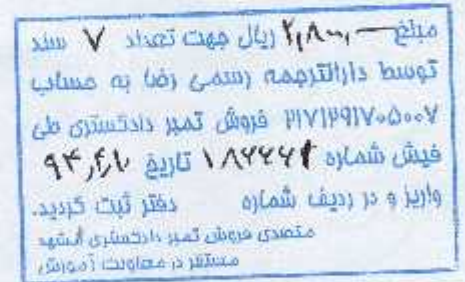 مبلغ ۲,۸۰۰,۰۰۰ ریال جهت تعداد ۷ سند
توسط دارالترجمه رسمی رضا به حساب
۲۱۷۱۲۹۱۷۰۵۰۰۷ فروش تمبر دادگستری طی
فیش شماره تاریخ
واریز و در ردیف شماره دفتر ثبت گردید.
متصدی فروش تمبر دادگستری مشهد
مستقر در معاونت آموزش